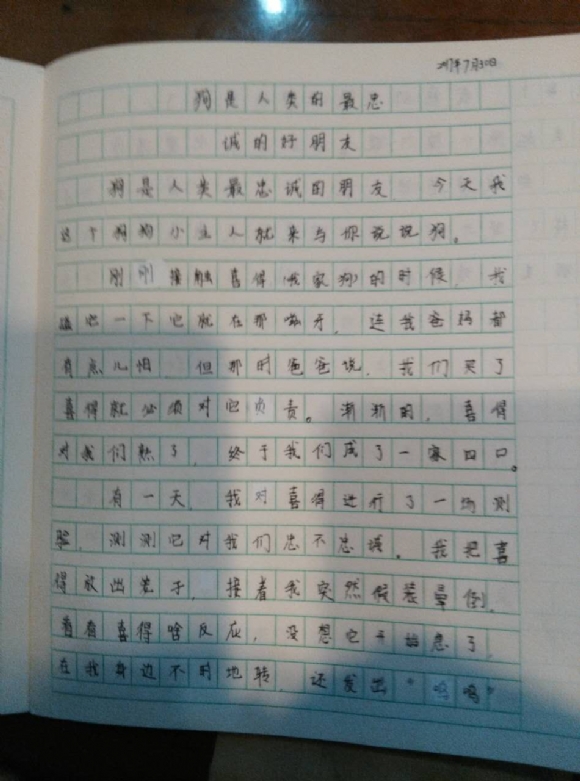 7月30日
狗是人类的最忠
诚的好朋友
狗是人类最忠诚的朋友，今天我
这个狗狗小主人就来与你说说狗。
刚刚接触喜得（我家狗）的时候，我
一下它就在那嘶牙，连我爸妈都
有点儿怕，但那时爸爸说，我们买了
喜得就必须对它负责。渐渐的，喜得
对我们熟了，终于我们成了一家四口。
有一天，我对喜得进行了一场测
验，测测它对我们忠不忠诚。我把喜
得放出笼子，接着我突然假装晕倒，
看看喜得啥反应，没想它开始急了，
在我身边不时地转，还发出“呜呜”